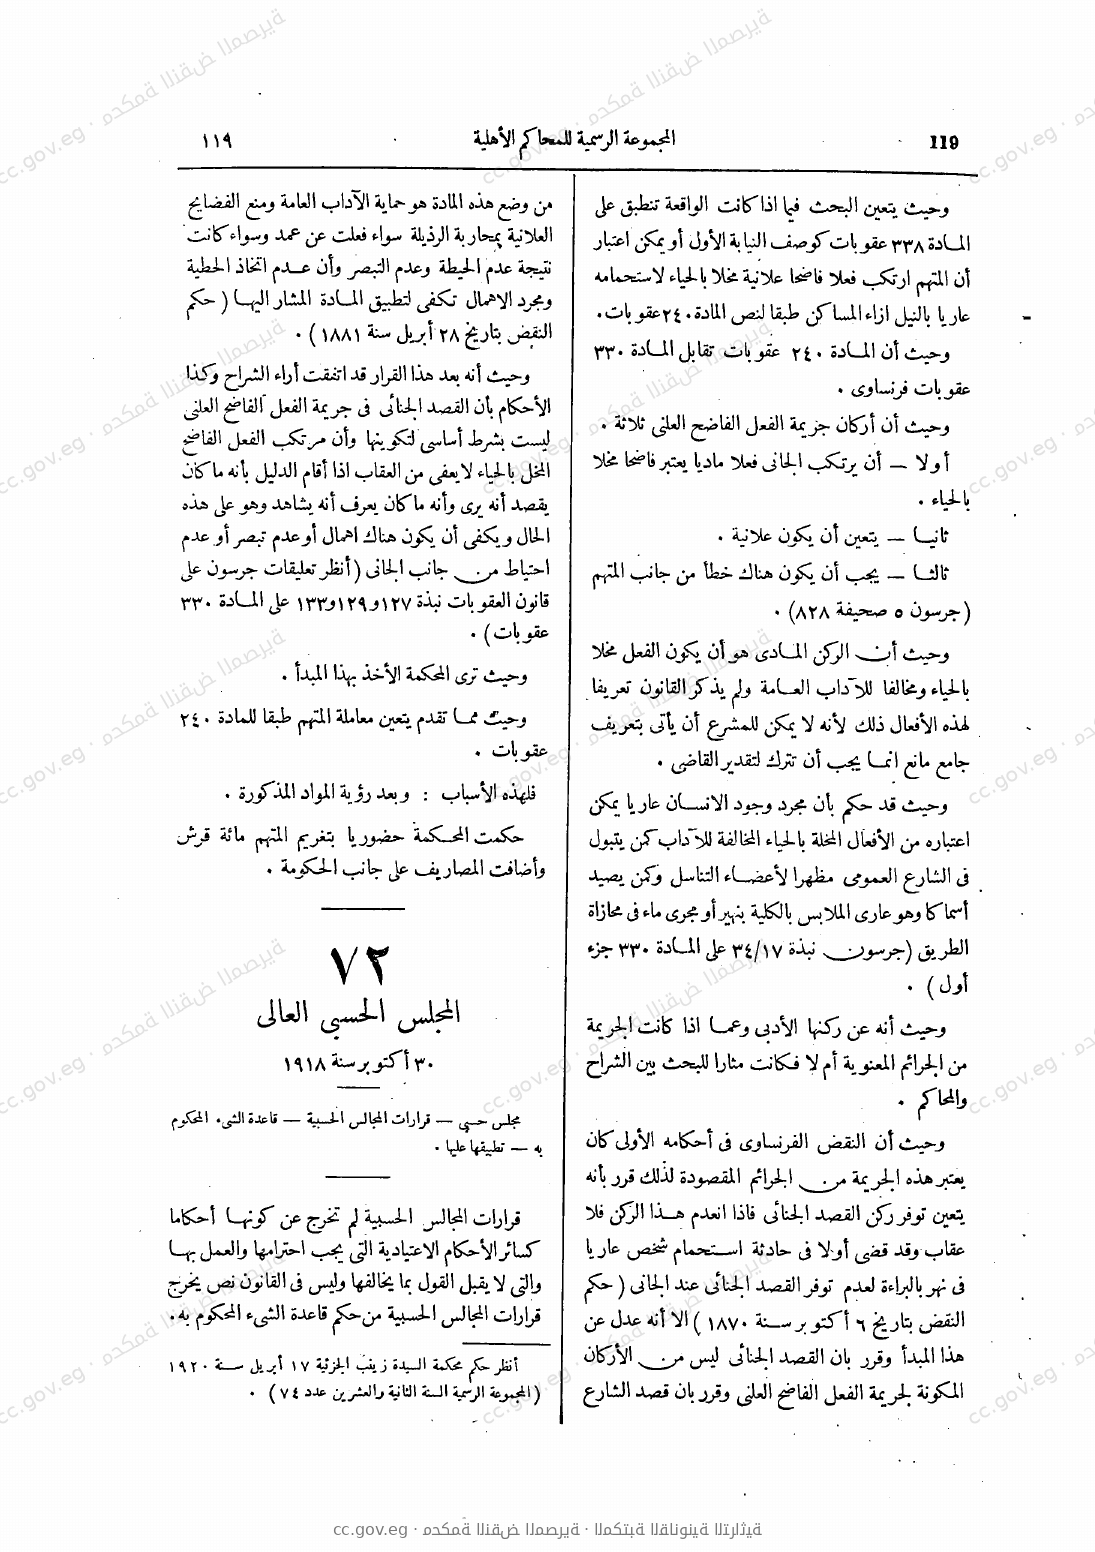 119
المجموعة الرسمية للمحاكم الأهلية
١١٩
وحيث يتعين البحث فيما اذا كانت الواقعة تنطبق على
المادة ٣٣٨ عقوبات كوصف النيابة الأول أو يمكن اعتبار
أن المتهم ارتكب فعلا فاضحا علانية مخلا بالحياء لاستحمامه
عاريا بالنيل ازاء المساكن طبقا لنص المادة ٢٤٠ عقوبات .
وحيث أن المادة ٢٤٠ عقوبات تقابل المادة ٣٣٠
عقوبات فرنساوى .
وحيث أن أركان جريمة الفعل الفاضح العلنى ثلاثة .
أولا — أن يرتكب الجانى فعلا ماديا يعتبر فاضحا مخلا
بالحياء .
ثانيا — يتعين أن يكون علانية .
ثالثا — يجب أن يكون هناك خطأ من جانب المتهم
(جرسون ٥ صحيفة ٨٢٨) .
وحيث أن الركن المادى هو أن يكون الفعل مخلا
بالحياء ومخالفا للآداب العامة ولم يذكر القانون تعريفا
لهذه الأفعال ذلك لأنه لا يمكن للمشرع أن يأتى بتعريف
جامع مانع انما يجب أن تترك لتقدير القاضى .
وحيث قد حكم بأن مجرد وجود الانسان عاريا يمكن
اعتباره من الأفعال المخلة بالحياء المخالفة للآداب كمن يتبول
فى الشارع العمومى مظهرا لأعضاء التناسل وكمن يصيد
أسماكا وهو عارى الملابس بالكلية بنهر أو مجرى ماء فى محازاة
الطريق (جرسون نبذة ٣٤/١٧ على المادة ٣٣٠ جزء
أول) .
وحيث أنه عن ركنها الأدبى وعما اذا كانت الجريمة
من الجرائم المعنوية أم لا فكانت مثارا للبحث بين الشراح
والمحاكم .
وحيث أن النقض الفرنساوى فى أحكامه الأولى كان
يعتبر هذه الجريمة من الجرائم المقصودة لذلك قرر بأنه
يتعين توفر ركن القصد الجنائى فاذا انعدم هذا الركن فلا
عقاب وقد قضى أولا فى حادثة استحمام شخص عاريا
فى نهر بالبراءة لعدم توفر القصد الجنائى عند الجانى (حكم
النقض بتاريخ ٦ أكتوبر سنة ١٨٧٠) الا أنه عدل عن
هذا المبدأ وقرر بان القصد الجنائى ليس من الأركان
المكونة لجريمة الفعل الفاضح العلنى وقرر بان قصد الشارع
من وضع هذه المادة هو حماية الآداب العامة ومنع الفضايح
العلانية بمحاربة الرذيلة سواء فعلت عن عمد وسواء كانت
نتيجة عدم الحيطة وعدم التبصر وأن عدم اتخاذ الحطية
ومجرد الاهمال تكفى لتطبيق المادة المشار اليها (حكم
النقض بتاريخ ٢٨ أبريل سنة ١٨٨١) .
وحيث أنه بعد هذا القرار قد اتفقت أراء الشراح وكذا
الأحكام بأن القصد الجنائى فى جريمة الفعل الفاضح العلنى
ليست بشرط أساسى لتكوينها وأن مرتكب الفعل الفاضح
المخل بالحياء لا يعفى من العقاب اذا أقام الدليل بأنه ما كان
يقصد أنه يرى وأنه ما كان يعرف أنه يشاهد وهو على هذه
الحال ويكفى أن يكون هناك اهمال أو عدم تبصر أو عدم
احتياط من جانب الجانى (أنظر تعليقات جرسون على
قانون العقوبات نبذة ١٢٧ و ١٢٩ و١٣٣ على المادة ٣٣٠
عقوبات) .
وحيث ترى المحكمة الأخذ بهذا المبدأ .
وحيث مما تقدم يتعين معاملة المتهم طبقا للمادة ٢٤٠
عقوبات .
فلهذه الأسباب : وبعد رؤية المواد المذكورة .
حكمت المحكمة حضوريا بتغريم المتهم مائة قرش
وأضافت المصاريف على جانب الحكومة .
٧٢
المجلس الحسبى العالى
٣٠ أكتوبر سنة ١٩١٨
مجلس حسبى — قرارات المجالس الحسبية — قاعدة الشىء المحكوم
به — تطبيقها عليها .
قرارات المجالس الحسبية لم تخرج عن كونها أحكاما
كسائر الأحكام الاعتيادية التى يجب احترامها والعمل بها
والتى لا يقبل القول بما يخالفها وليس فى القانون نص يخرج
قرارات المجالس الحسبية من حكم قاعدة الشىء المحكوم به .
أنظر حكم محكمة السيدة زينب الجزئية ١٧ أبريل سنة ١٩٢٠
(المجموعة الرسمية السنة الثانية والعشرين عدد ٧٤) .
cc.gov.eg · محكمة النقض المصرية · المكتبة القانونية التراثية